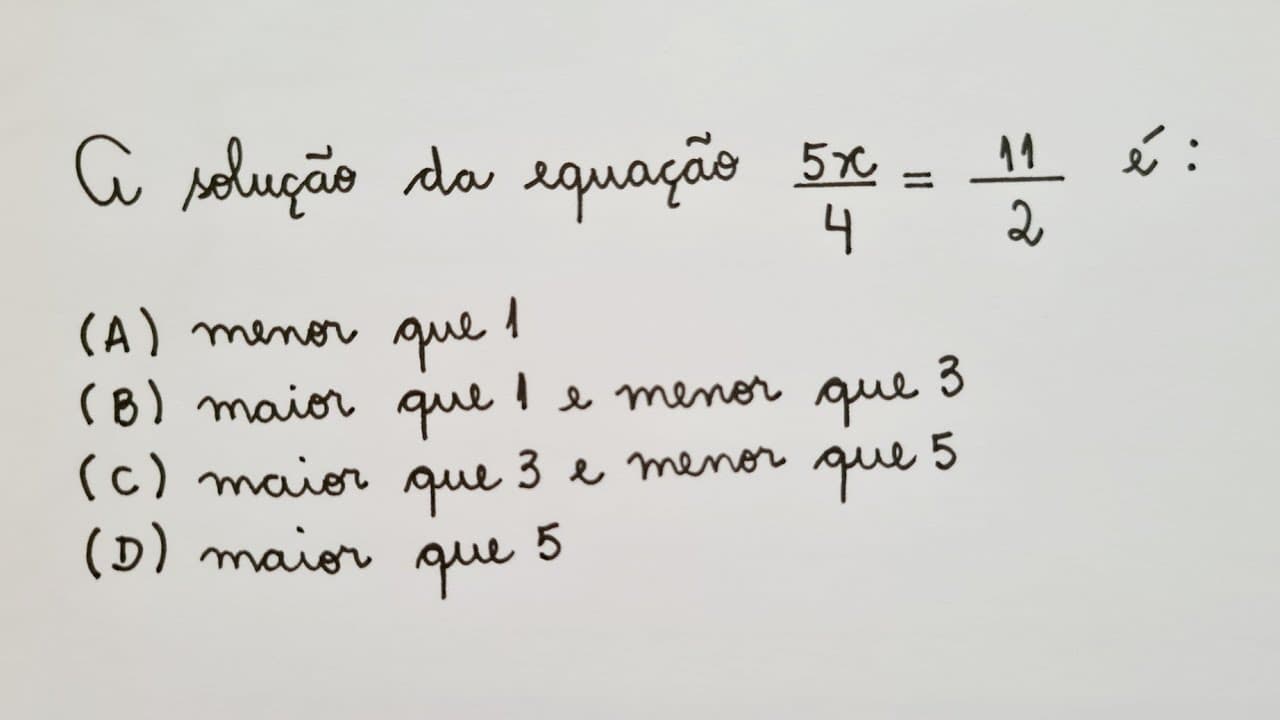 A solução da equação 5x/4 = 11/2 é:
(A) menor que 1
(B) maior que 1 e menor que 3
(C) maior que 3 e menor que 5
(D) maior que 5